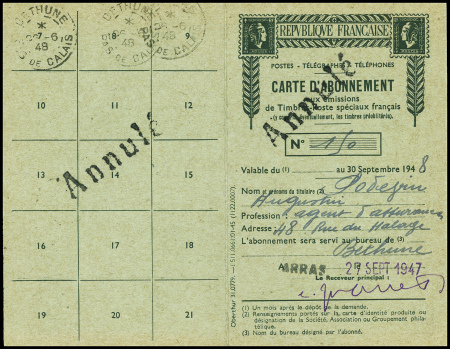 BETHUNE
7-6
48
PAS DE CALAIS
BETHUNE
48
PAS DE CALAIS
9
10
11
12
13
14
15
16
17
18
19
20
21
Annulé
RÉPUBLIQUE FRANÇAISE
POSTES - TÉLÉGRAPHES & TÉLÉPHONES
CARTE D'ABONNEMENT
aux émissions
de Timbres-Poste spéciaux français
(y compris, éventuellement, les timbres préoblitérés).
Annulé
N° 150
Valable du (1) au 30 Septembre 1948
Nom et prénoms du titulaire (2)
Augustin
Profession : agent d'assurances
Adresse : 48 Rue du Halage
L'abonnement sera servi au bureau de (3)
Béthune
A ARRAS 27 SEPT 1947
Le Receveur principal :
(1) Un mois après le dépôt de la demande.
(2) Renseignements portés sur la carte d'identité produite ou
désignation de la Société, Association ou Groupement phila-
télique.
(3) Nom du bureau désigné par l'abonné.